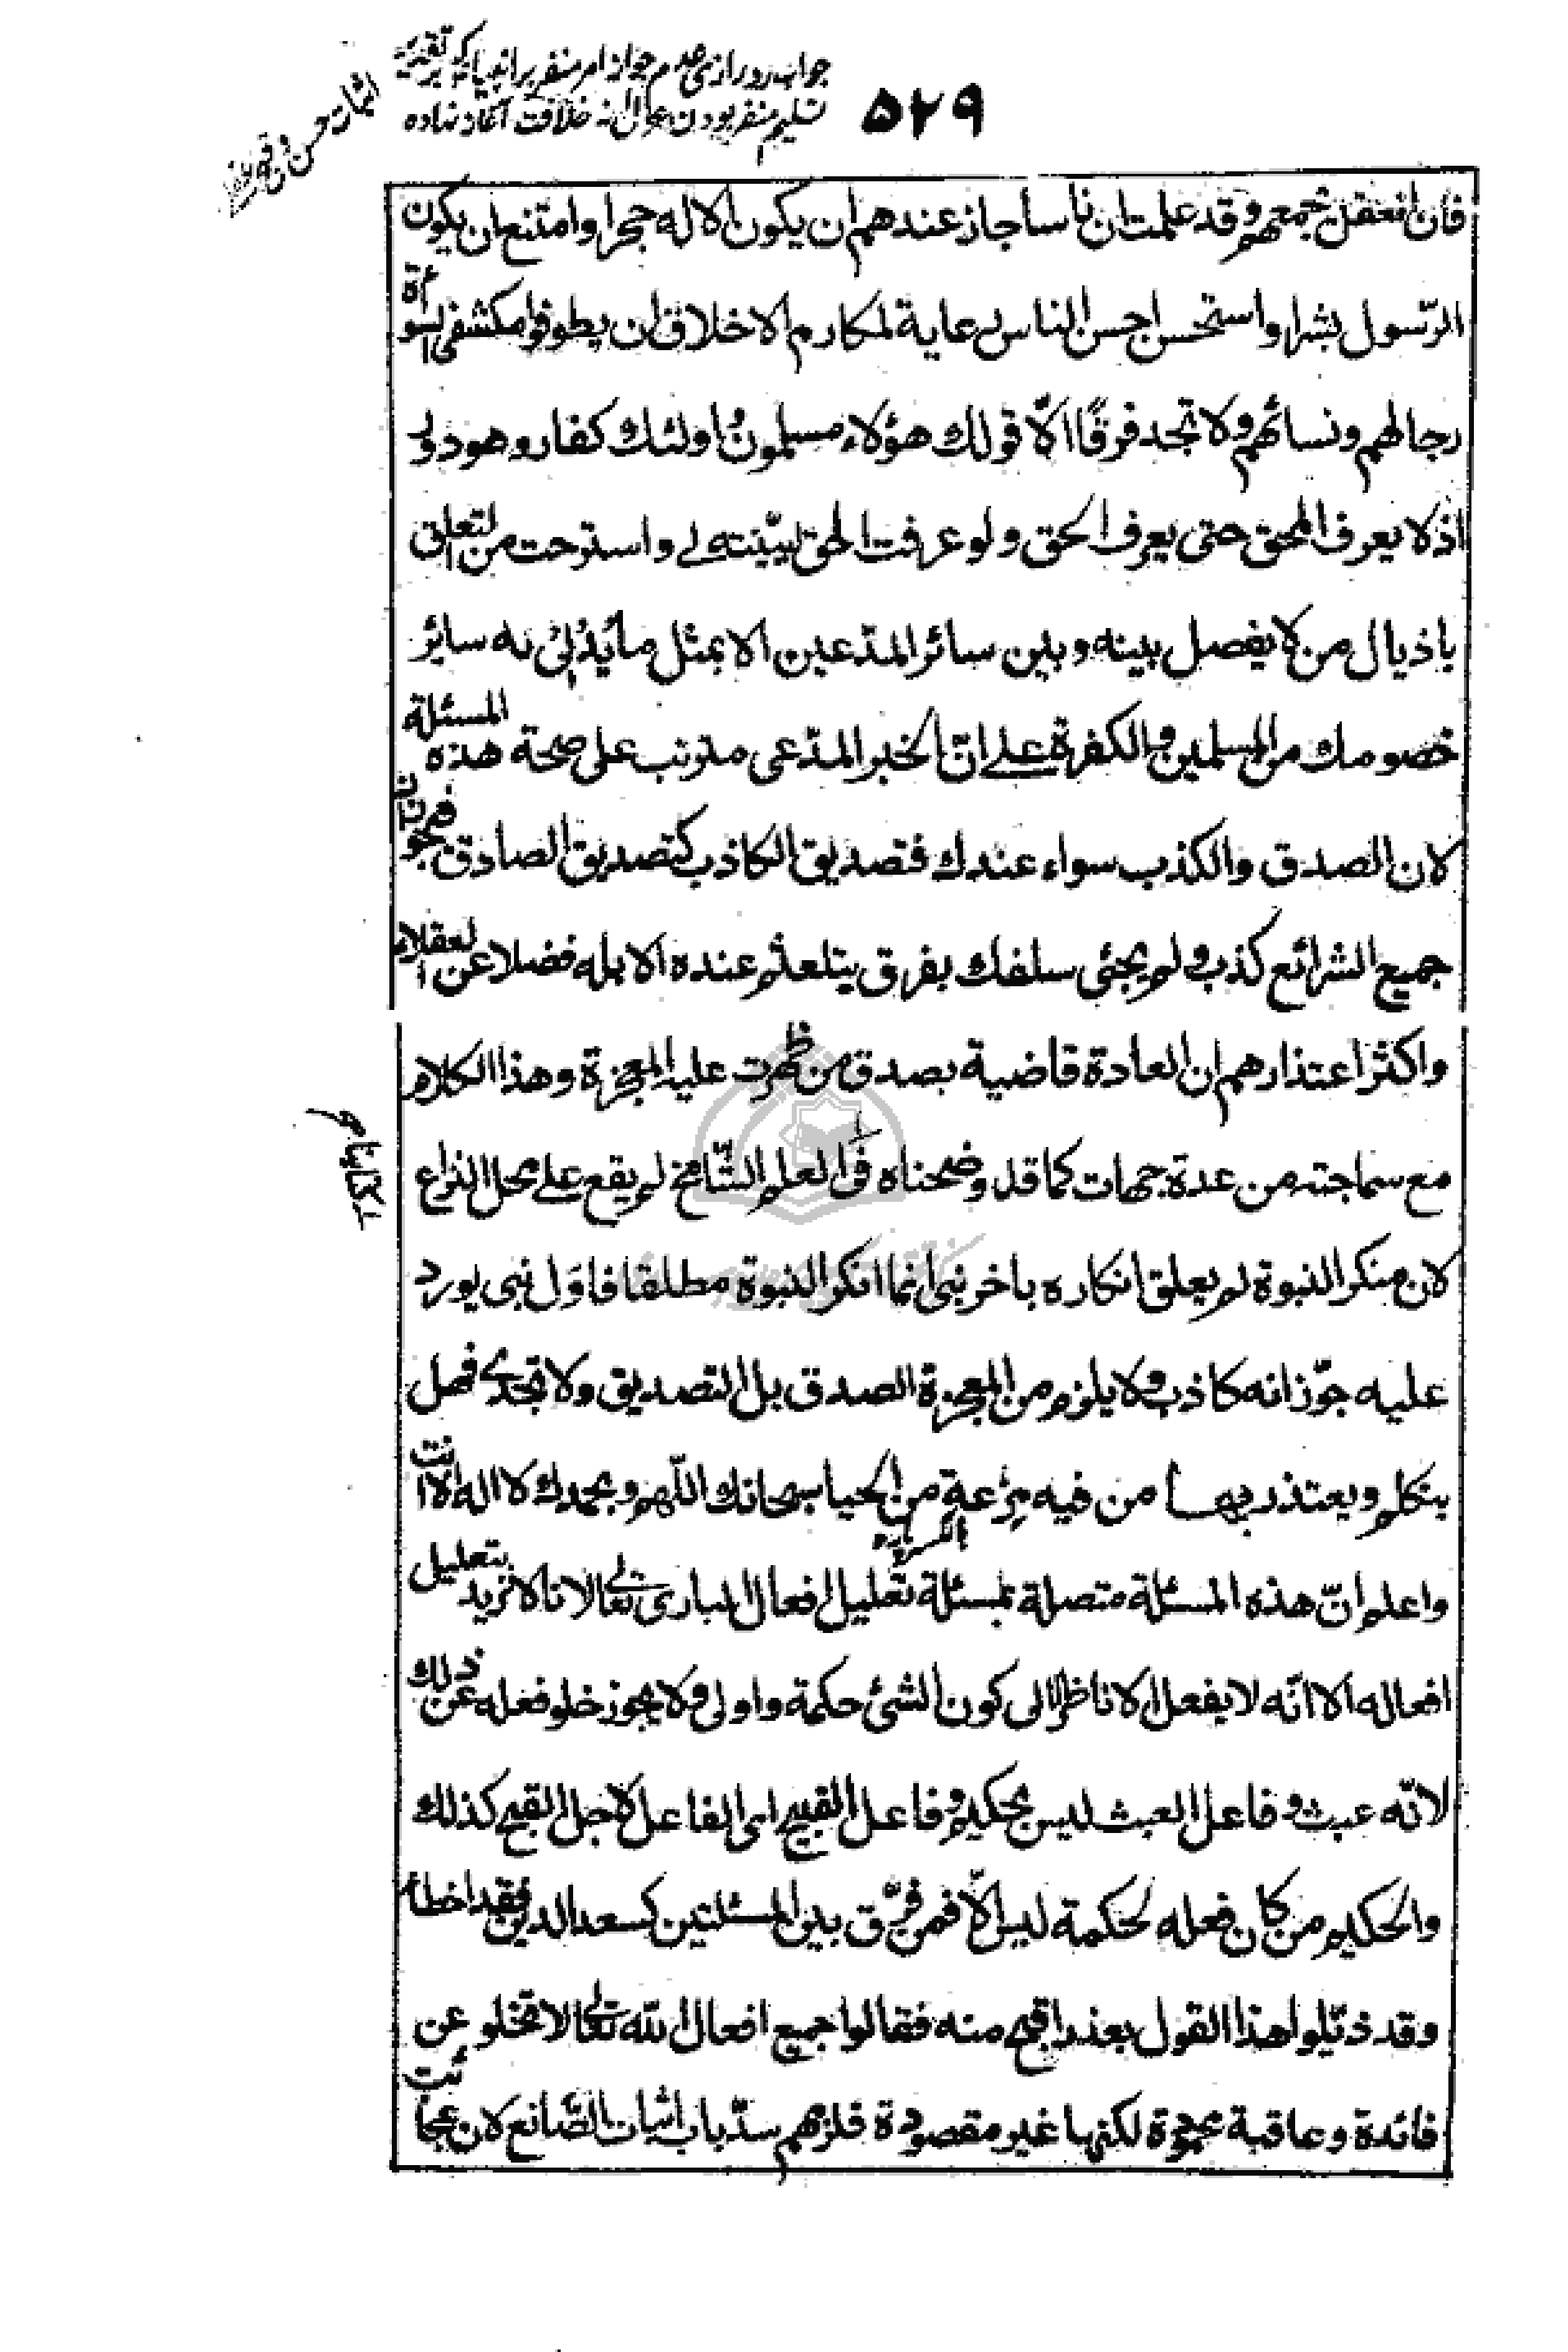 جواب رد رازی عدم جواز امر منفر بر انبیا که بر تقدیر
تسلیم منفر بودن عزل از خلافت آغاز نداده
۵۲۹
اثبات حسن و قبح عقلی
فان انعقل جمعهم وقد علمت ان ناسا جاز عندهم ان يكون الاله حجرا وامتنع ان يكون
الرّسول بشرا واستحسن احسن الناس رعاية لمكارم الاخلاق ان يطوفوا مكشفى السوأة
رجالهم ونسائهم ولا تجد فرقًا الّا قولك هؤلاء مسلمون واولئك كفار وهو دورى
اذ لا يعرف المحق حتى يعرف الحق ولو عرفت الحق لبيّنته لى واسترحت من التعلق
باذيال من لا يفصل بينه وبين سائر المدّعين الا بمثل ما يُدْلِىْ به سائر
خصومك من المسلمين والكفرة على انّ الخبر المدّعى مترتب على صحة هذه المسئلة
لان الصدق والكذب سواء عندك فتصديق الكاذب كتصديق الصادق فمجوز ان
جميع الشرائع كذب ولم يجئى سلفك بفرق يتلعثم عنده الابله فضلا عن العقلاء
واكثر اعتذارهم ان العادة قاضية بصدق من ظهرت عليه المعجزة وهذا الكلام
مع سماجته من عدة جهات كما قد وضحناه فى العلم الشّامخ لم يقع على محل النزاع
لان منكر النبوة لم يعلق انكاره باخر نبى انما انكر النبوة مطلقا فاوّل نبى يورد
عليه جوّز انه كاذب ولا يلزم من المعجزة الصدق بل التصديق ولا تجدى فهل
يتكلم ويعتذر بهذا من فيه مزعة من الحيا سبحانك اللّهم وبحمدك لا اله الا انت
واعلم انّ هذه المسئلة متصلة بمسئلة تعليل افعال البارى تعالى لانا لا نريد بتعليل
افعاله الا انّه لا يفعل الا ناظرا الى كون الشئ حكمة واولى ولا يجوز خلو فعله عن ذلك
لانّه عبث وفاعل العبث ليس بحكيم وفاعل القبيح اى الفاعل لاجل القبح كذلك
والحكيم من كان فعله لحكمة ليس الّا فمن فرّق بين المسئلتين كسعد الدين فقد اخطأ
وقد ذيّلوا هذا القول بعذر اقبح منه فقالوا جميع افعال اللّه تعالى لا تخلو عن
فائدة وعاقبة محمودة لكنها غير مقصودة فلزمهم سدّ باب اثبات الصّانع لان عجائب